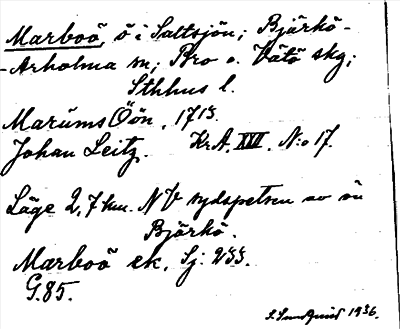 Marboö, ö i Saltsjön; Björkö-
-Arholma sn; Bro o. Vätö skg;
Sthlms l.
Marums Öön, 1713.
Johan Leitz. Kr.A. XVII. N:o 17.
Läge 2,7 km. NV sydspetsen av ön
Björkö.
Marboö ek. Sj: 233.
G.85.
1936.